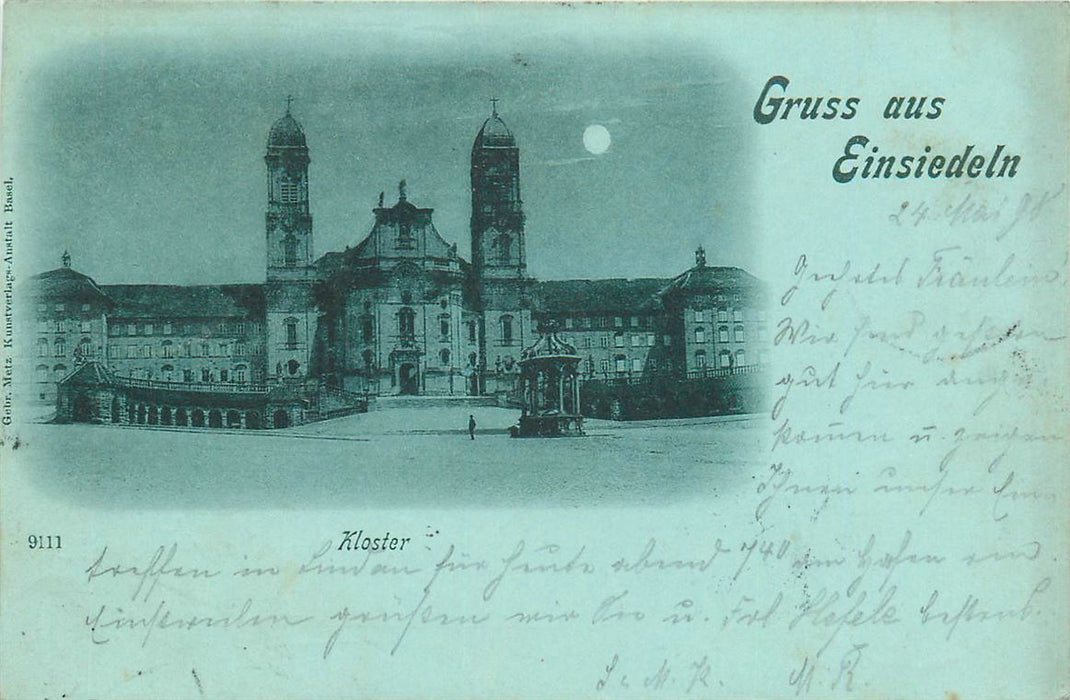 Gruss aus
Einsiedeln
24 Mai 98
Fräulein!
Wir sind gestern
gut hier ange-
kommen u. zeigen
Ihnen unser Ein-
treffen in Lindau für heute abend 740 am Hafen an.
Einstweilen grüßen wir Sie u. Frl bestens.
M. R.
9111
Kloster
Gebr. Metz Kunstverlags-Anstalt Basel.